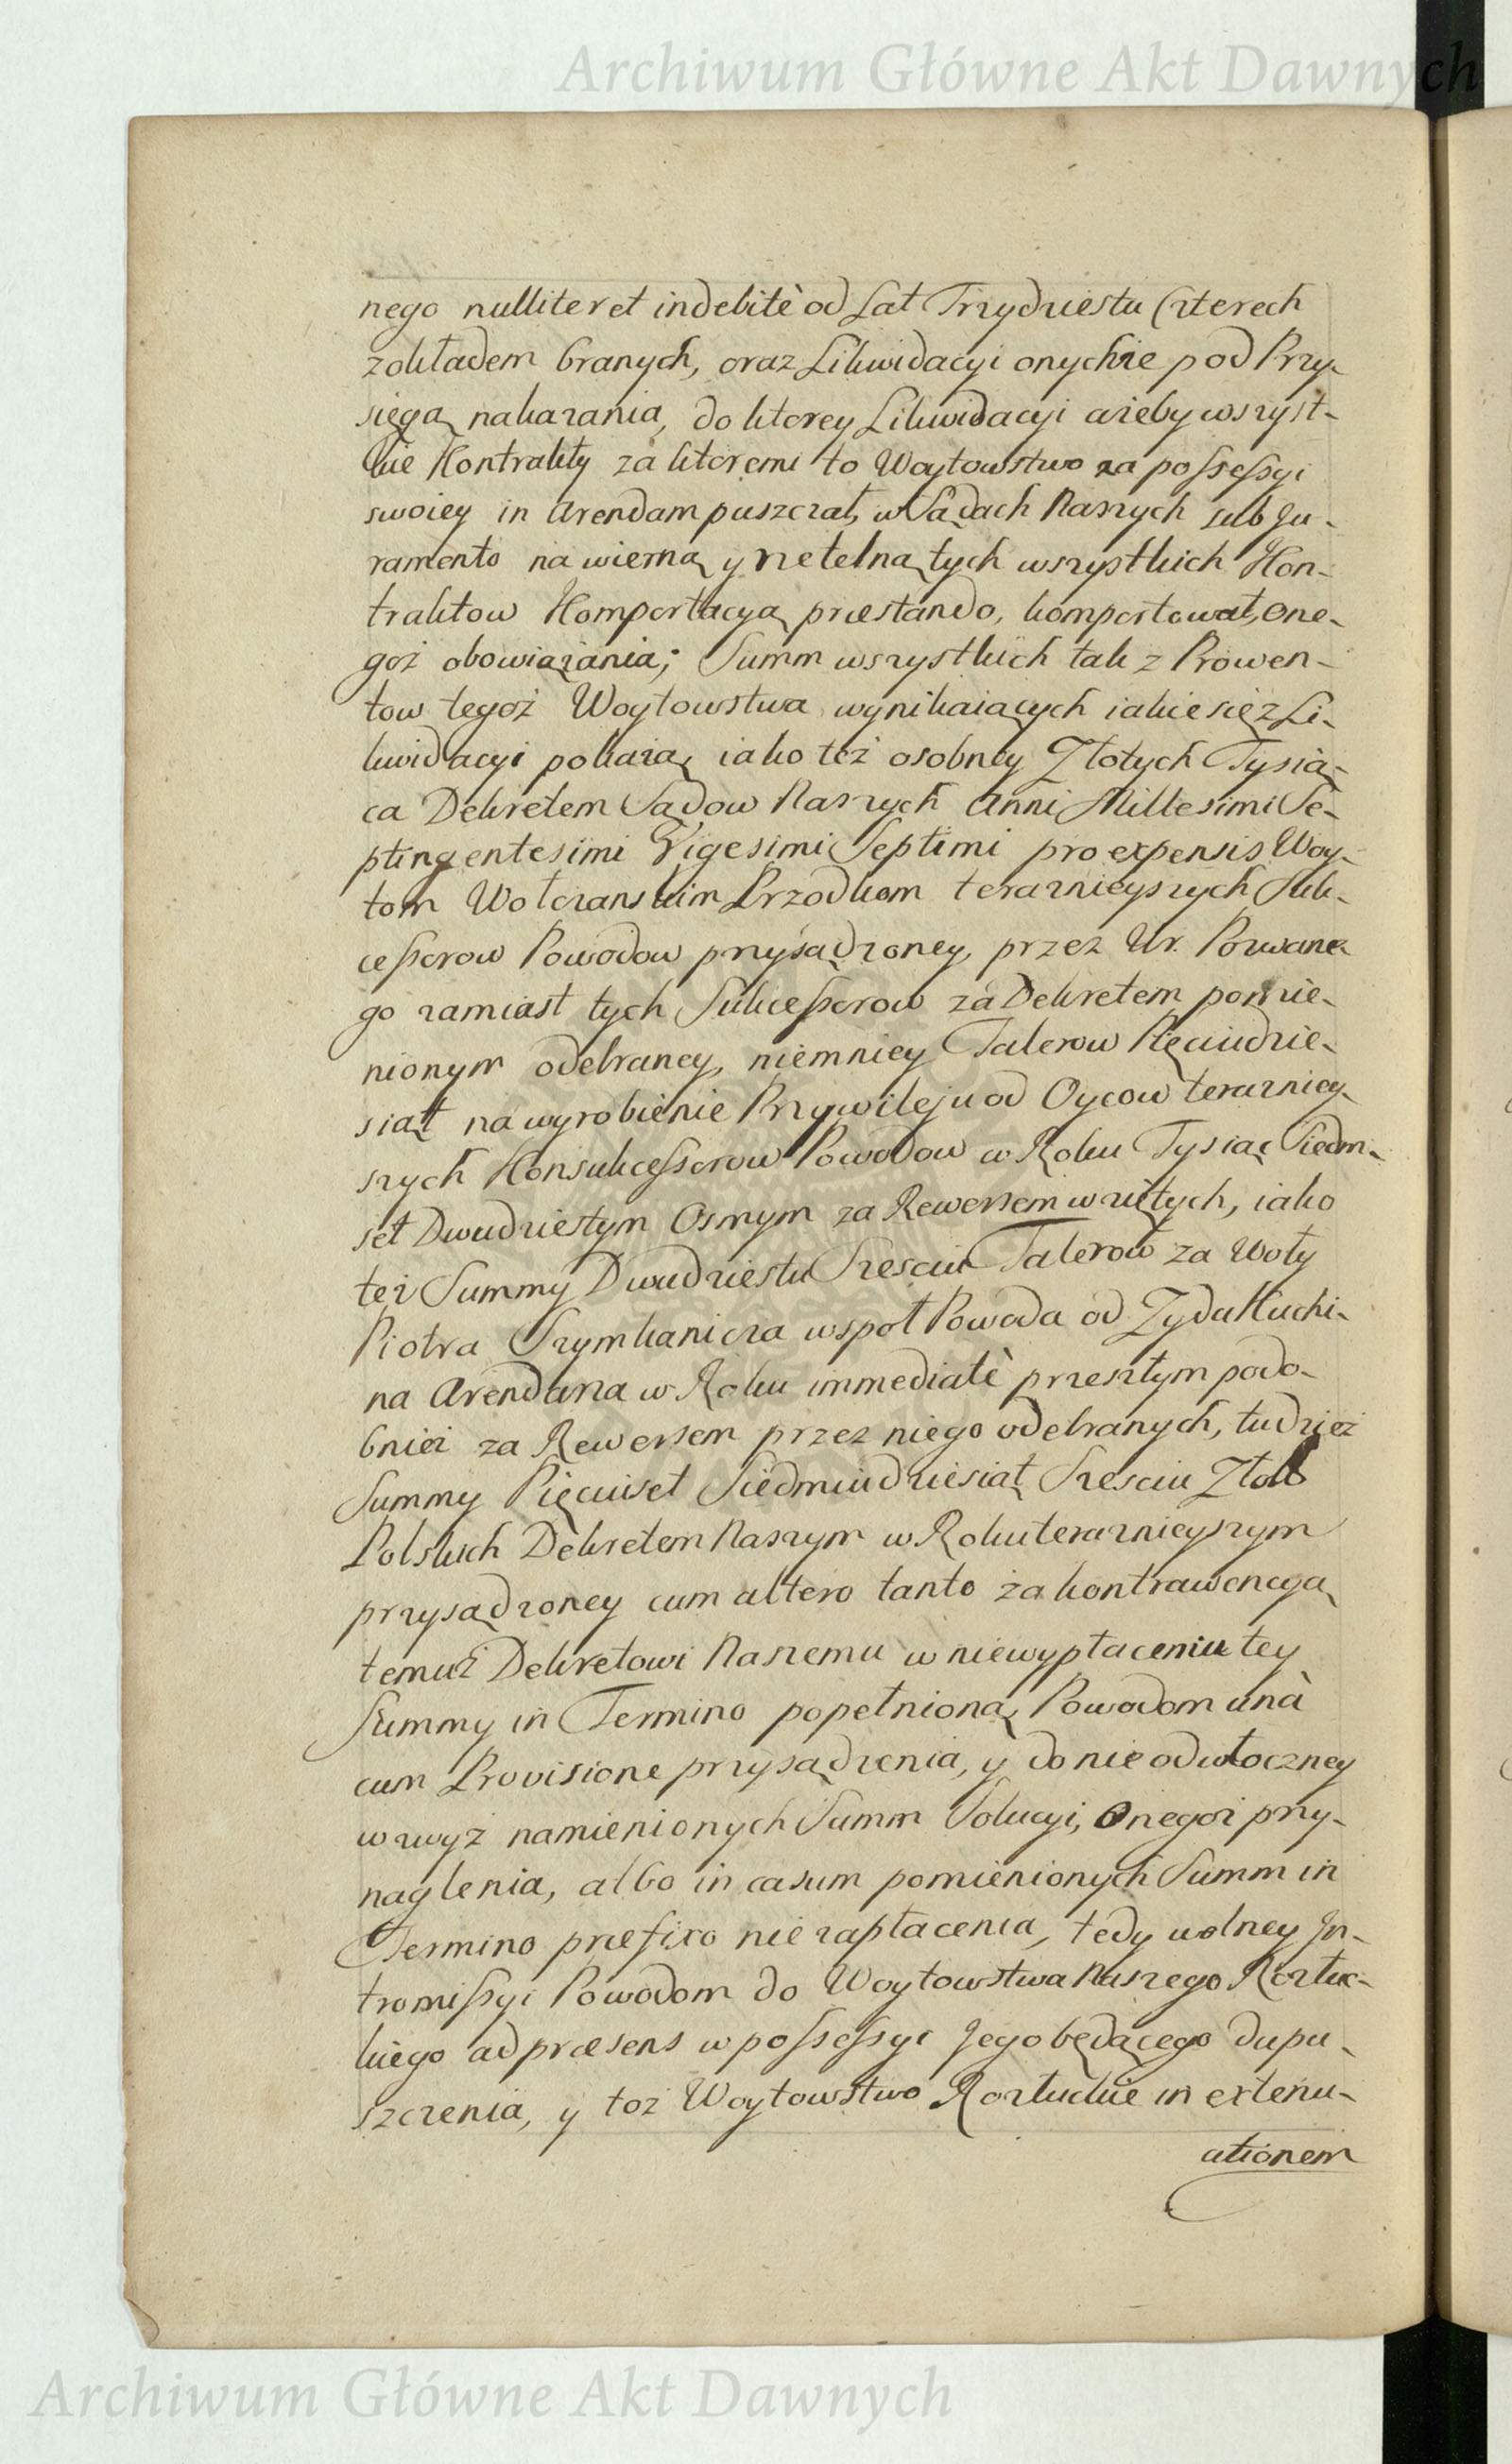 Archiwum Główne Akt Dawnych
nego nulliter et indebitè od Lat Trzydziestu Czterech
zokładem branych, oraz Likwidacyi onychże pod Przy-
sięgą nakazania, do ktorey Likwidacyi ażeby wszyst-
kie Kontrakty za ktoremi to Woytowstwo za possessyi
swoiey in Arendam puszczał, w Sądach Naszych sub Ju-
ramento na wierną y rzetelną tych wszystkich Kon-
traktow Komportacyą præstando, komportował, one-
goż obowiązania; Summ wszystkich tak z Prowen-
tow tegoż Woytowstwa wynikaiących iakie się z Li-
kwidacyi pokażą, iako też osobney Złotych Tysią-
ca Dekretem Sądow Naszych Anni Millesimi Se-
ptingentesimi Vigesimi Septimi pro expensis Woy-
tom Wołczanskim Przodkom teraznieyszych Suk-
cessorow Powodow przysądzoney, przez Ur. Pozwane
go zamiast tych Sukcessorow za Dekretem pomie-
nionym odebraney, niemniey Talerow Pięciudzie-
siąt na wyrobienie Przywileju od Oycow terazniey-
szych Konsukcessorow Powodow w Roku Tysiąc Siedm-
set Dwudziestym Osmym za Rewersem wziętych, iako
też Summy Dwudziestu Szesciu Talerow za Woły
Piotra Szymkanicza wspoł Powoda od Zyda Kuchi-
na Arendarza w Roku immediatè przeszłym podo-
bnież za Rewersem przez niego odebranych, tudzież
Summy Pięciuset Siedmiudziesiąt Szesciu Złott
Polskich Dekretem Naszym w Roku teraznieyszym
przysądzoney cum altero tanto za kontrawencyą
temuż Dekretowi Naszemu w niewypłaceniu tey
Summy in Termino popełnioną, Powodom unà
cum Provisione przysądzenia, y do nieodwłoczney
wzwyż namienionych Summ Solucyi, Onegoż przy-
naglenia, albo in casum pomienionych Summ in
Termino præfixo nie zapłacenia, tedy wolney In-
tromissyi Powodom do Woytowstwa Naszego Rozłuc-
kiego ad præsens w possessyi Jego będącego dopu-
szczenia, y toż Woytowstwo Rozłuckie in extenu-
ationem
Archiwum Główne Akt Dawnych